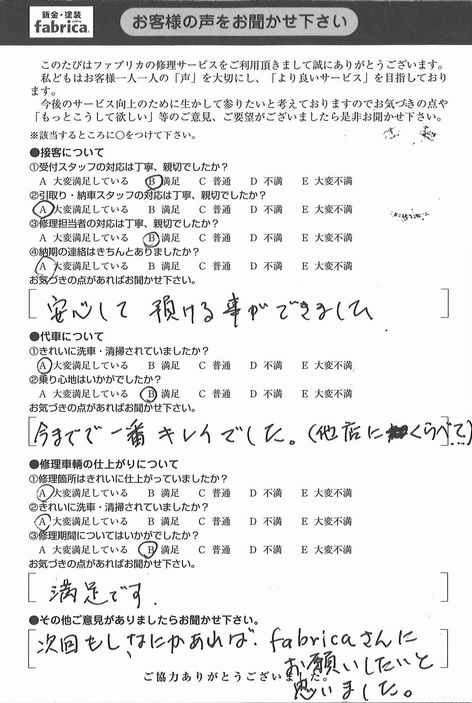 鈑金・塗装
fabrica.
お客様の声をお聞かせ下さい
このたびはファブリカの修理サービスをご利用頂きまして誠にありがとうございます。
私どもはお客様一人一人の「声」を大切にし、「より良いサービス」を目指しており
ます。
今後のサービス向上のために生かして参りたいと考えておりますのでお気づきの点や
「もっとこうして欲しい」等のご意見、ご要望がございましたら是非お聞かせ下さい。
※該当するところに○をつけて下さい。
●接客について
①受付スタッフの対応は丁寧、親切でしたか?
A 大変満足している B 満足 C 普通 D 不満 E 大変不満
②引取り・納車スタッフの対応は丁寧、親切でしたか?
A 大変満足している B 満足 C 普通 D 不満 E 大変不満
③修理担当者の対応は丁寧、親切でしたか?
A 大変満足している B 満足 C 普通 D 不満 E 大変不満
④納期の連絡はきちんとありましたか?
A 大変満足している B 満足 C 普通 D 不満 E 大変不満
お気づきの点があればお聞かせ下さい。
安心して預ける事ができました
●代車について
①きれいに洗車・清掃されていましたか?
A 大変満足している B 満足 C 普通 D 不満 E 大変不満
②乗り心地はいかがでしたか?
A 大変満足している B 満足 C 普通 D 不満 E 大変不満
お気づきの点があればお聞かせ下さい。
今までで一番キレイでした。(他店にくらべて)
●修理車輌の仕上がりについて
①修理箇所はきれいに仕上がっていましたか?
A 大変満足している B 満足 C 普通 D 不満 E 大変不満
②きれいに洗車・清掃されていましたか?
A 大変満足している B 満足 C 普通 D 不満 E 大変不満
③修理期間についてはいかがでしたか?
A 大変満足している B 満足 C 普通 D 不満 E 大変不満
お気づきの点があればお聞かせ下さい。
満足です.
●その他ご意見がありましたらお聞かせ下さい。
次回もし、なにかあれば、fabricaさんに
お願いしたいと
思いました。
ご協力ありがとうございました。